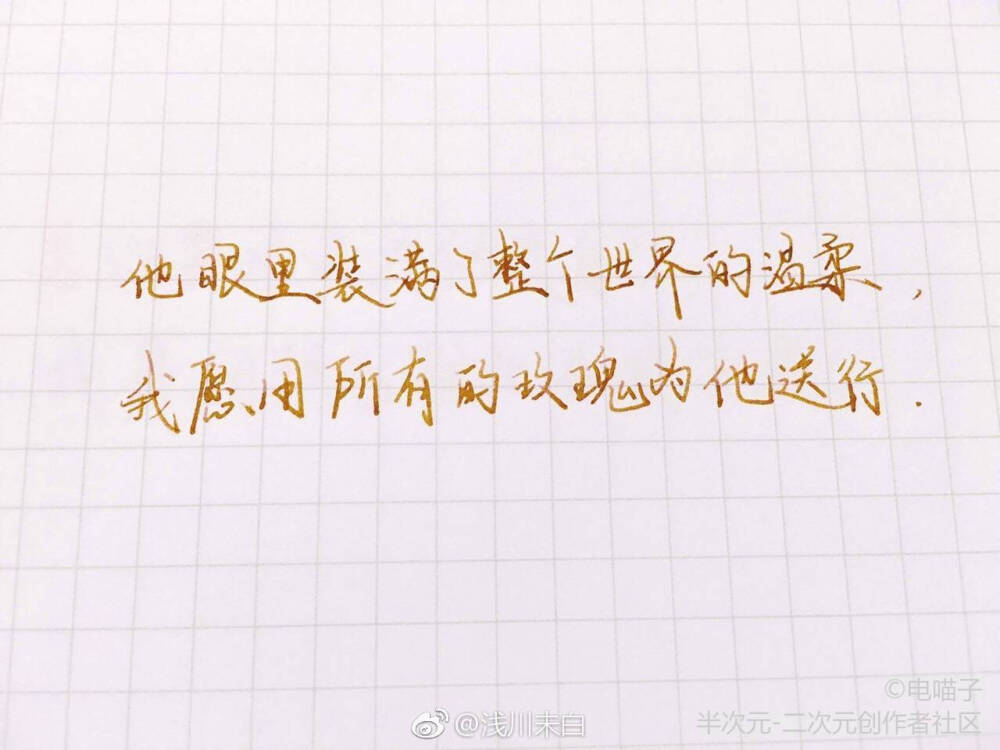 他眼里装满了整个世界的温柔，
我愿用所有的玫瑰为他送行.
©电喵子
@浅川未白
半次元-二次元创作者社区